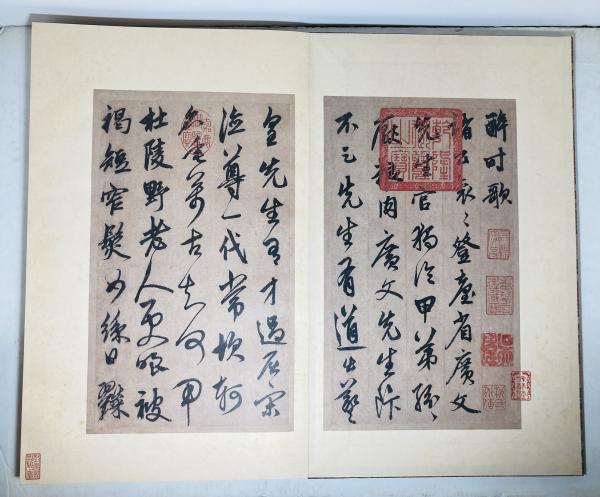 醉时歌
諸公衮〻登臺省廣文
先生官獨冷甲第紛〻
厭粱肉廣文先生飰
不足先生有道出羲
皇先生有才過屈宋
德尊一代常坎軻
名垂萬古知何用
杜陵野老人更嗤被
褐短窄鬢如絲日糴